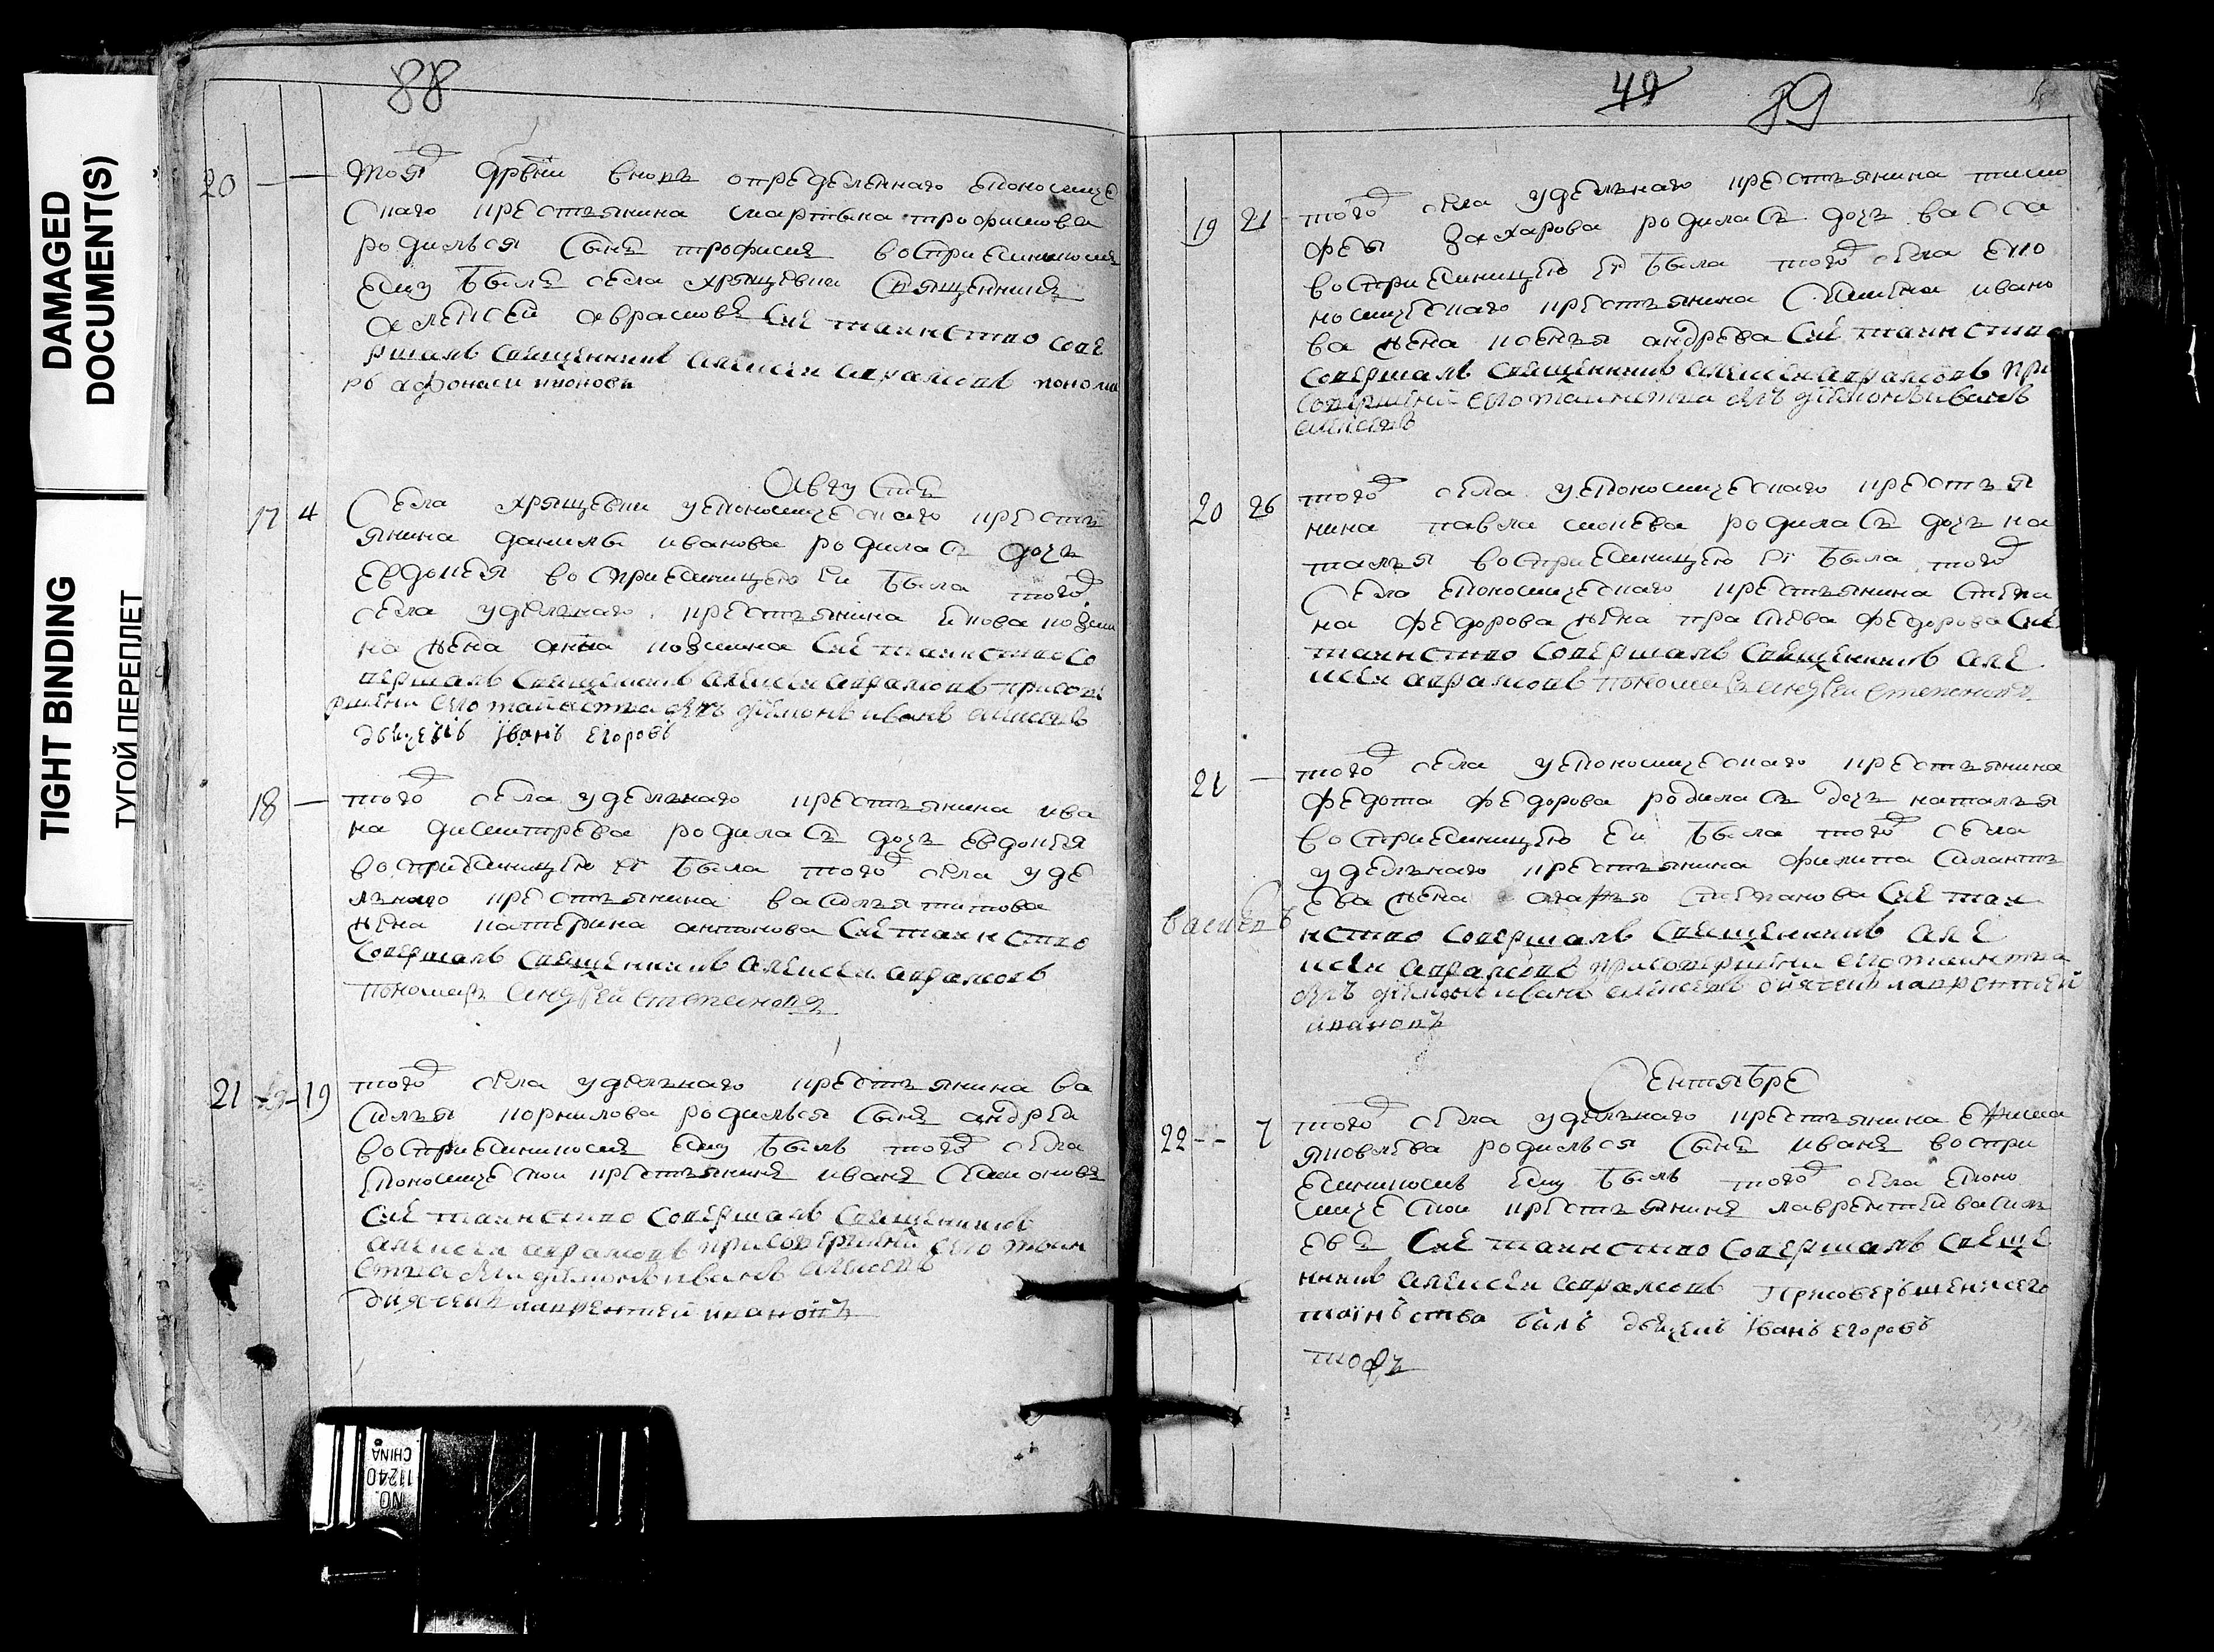 DAMAGED
DOCUMENT(S)
TIGHT BINDING
ТУГОЙ ПЕРЕПЛЕТ
88
20 — — тояд дрвни вновь определеннаго економиче
скаго крестьянина мартына трофимова
родилься сынъ трофимъ восприемникомъ
ему былъ села хрящевки священникъ
алексей аврамовъ сие таинство сове
ршалъ священникъ алексеи аврамовъ понома
рь афонаси
Августъ
17 4 Села хрящевки экономическаго кресть
янина данилы иванова родилась дочь
евдокея восприемницею еи была тогод
села удельнаго крестьянина
на жена анна козмина сие таинство со
вершалъ священникъ алексеи аврамовъ присове
ршени сего таинства былъ дьяконъ иванъ алексеевъ
дьячекъ їванъ егоровъ
18 — тогод села удельнаго крестьянина ива
на димитрева родилась дочь евдокея
восприемницею еи была тогод села уде
льнаго крестьянина василья титова
жена катерина антонова сие таинство
совершалъ священникъ алексеи аврамовъ
пономарь андрей степановъ
21 19 — 19 тогод села удельнаго крестьянина ва
силья корнилова родилься сынъ андреи
восприемникомъ ему былъ тогод села
економической крестьянинъ иванъ
сие таинство совершалъ священникъ
алексеи аврамовъ присовершени сего таин
ства былъ дьяконъ иванъ алексеевъ
дьячекъ лаврентей ивановъ
49 89
19 21 тогод села удельнаго крестьянина тимо
феы захарова родилась дочь васса
восприемницею еи была тогод села еко
номическаго крестьянина семена ивано
ва жена ксенья андрева сие таинство
совершалъ священникъ алексеи аврамовъ при
совершени сего таинства былъ дьяконъ иванъ
алексеевъ
20 26 тогод села экономическаго крестья
нина павла мокева родилась дочь на
талья восприемницею еи была тогод
села економическаго крестьянина степа
на федорова жена федорова сие
таинство совершалъ священникъ але
ксеи аврамовъ пономарь андреи степановъ
21 — тогод села экономическаго крестьянина
федота федорова родилась дочь наталья
восприемницею еи была тогод села
удельнаго крестьянина филипа силанть
ева жена степанова сие таи
нство совершалъ священникъ але
ксеи аврамовъ присовершени сего таинства
былъ дьяконъ иванъ алексеевъ дьячекъ лаврентией
ивановъ
Сентябре
22 — 7 тогод села удельнаго крестьянина ефима
яковлева родилься сынъ иванъ воспри
емникомъ ему былъ тогод села еконо
мической крестьянинъ лаврентей василь
евъ сие таинство совершалъ свяще
нникъ алексеи аврамовъ присоверъшениисего
таинъства былъ дьячекъ їванъ егоровъ
NO.
11240
CHINA